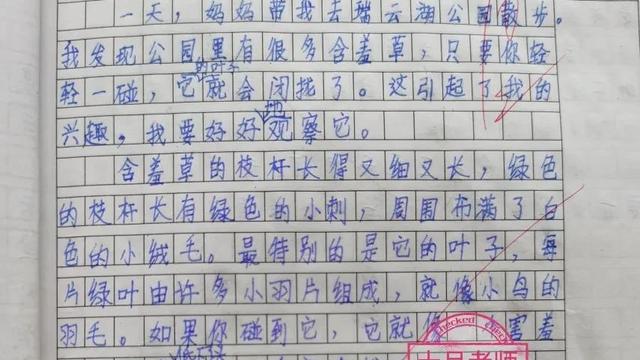 一天，妈妈带我去瑞云湖公园散步。
我发现公园里有很多含羞草，只要你轻
的叶子
轻一碰，它就会闭拢了。这引起了我的
地
兴趣，我要好好观察它。
含羞草的枝杆长得又细又长，绿色
的枝杆长有绿色的小刺，周围布满了白
色的小绒毛。最特别的是它的叶子，每
片绿叶由许多小羽片组成，就像小鸟的
羽毛。如果你碰到它，它就像 害羞
Checked